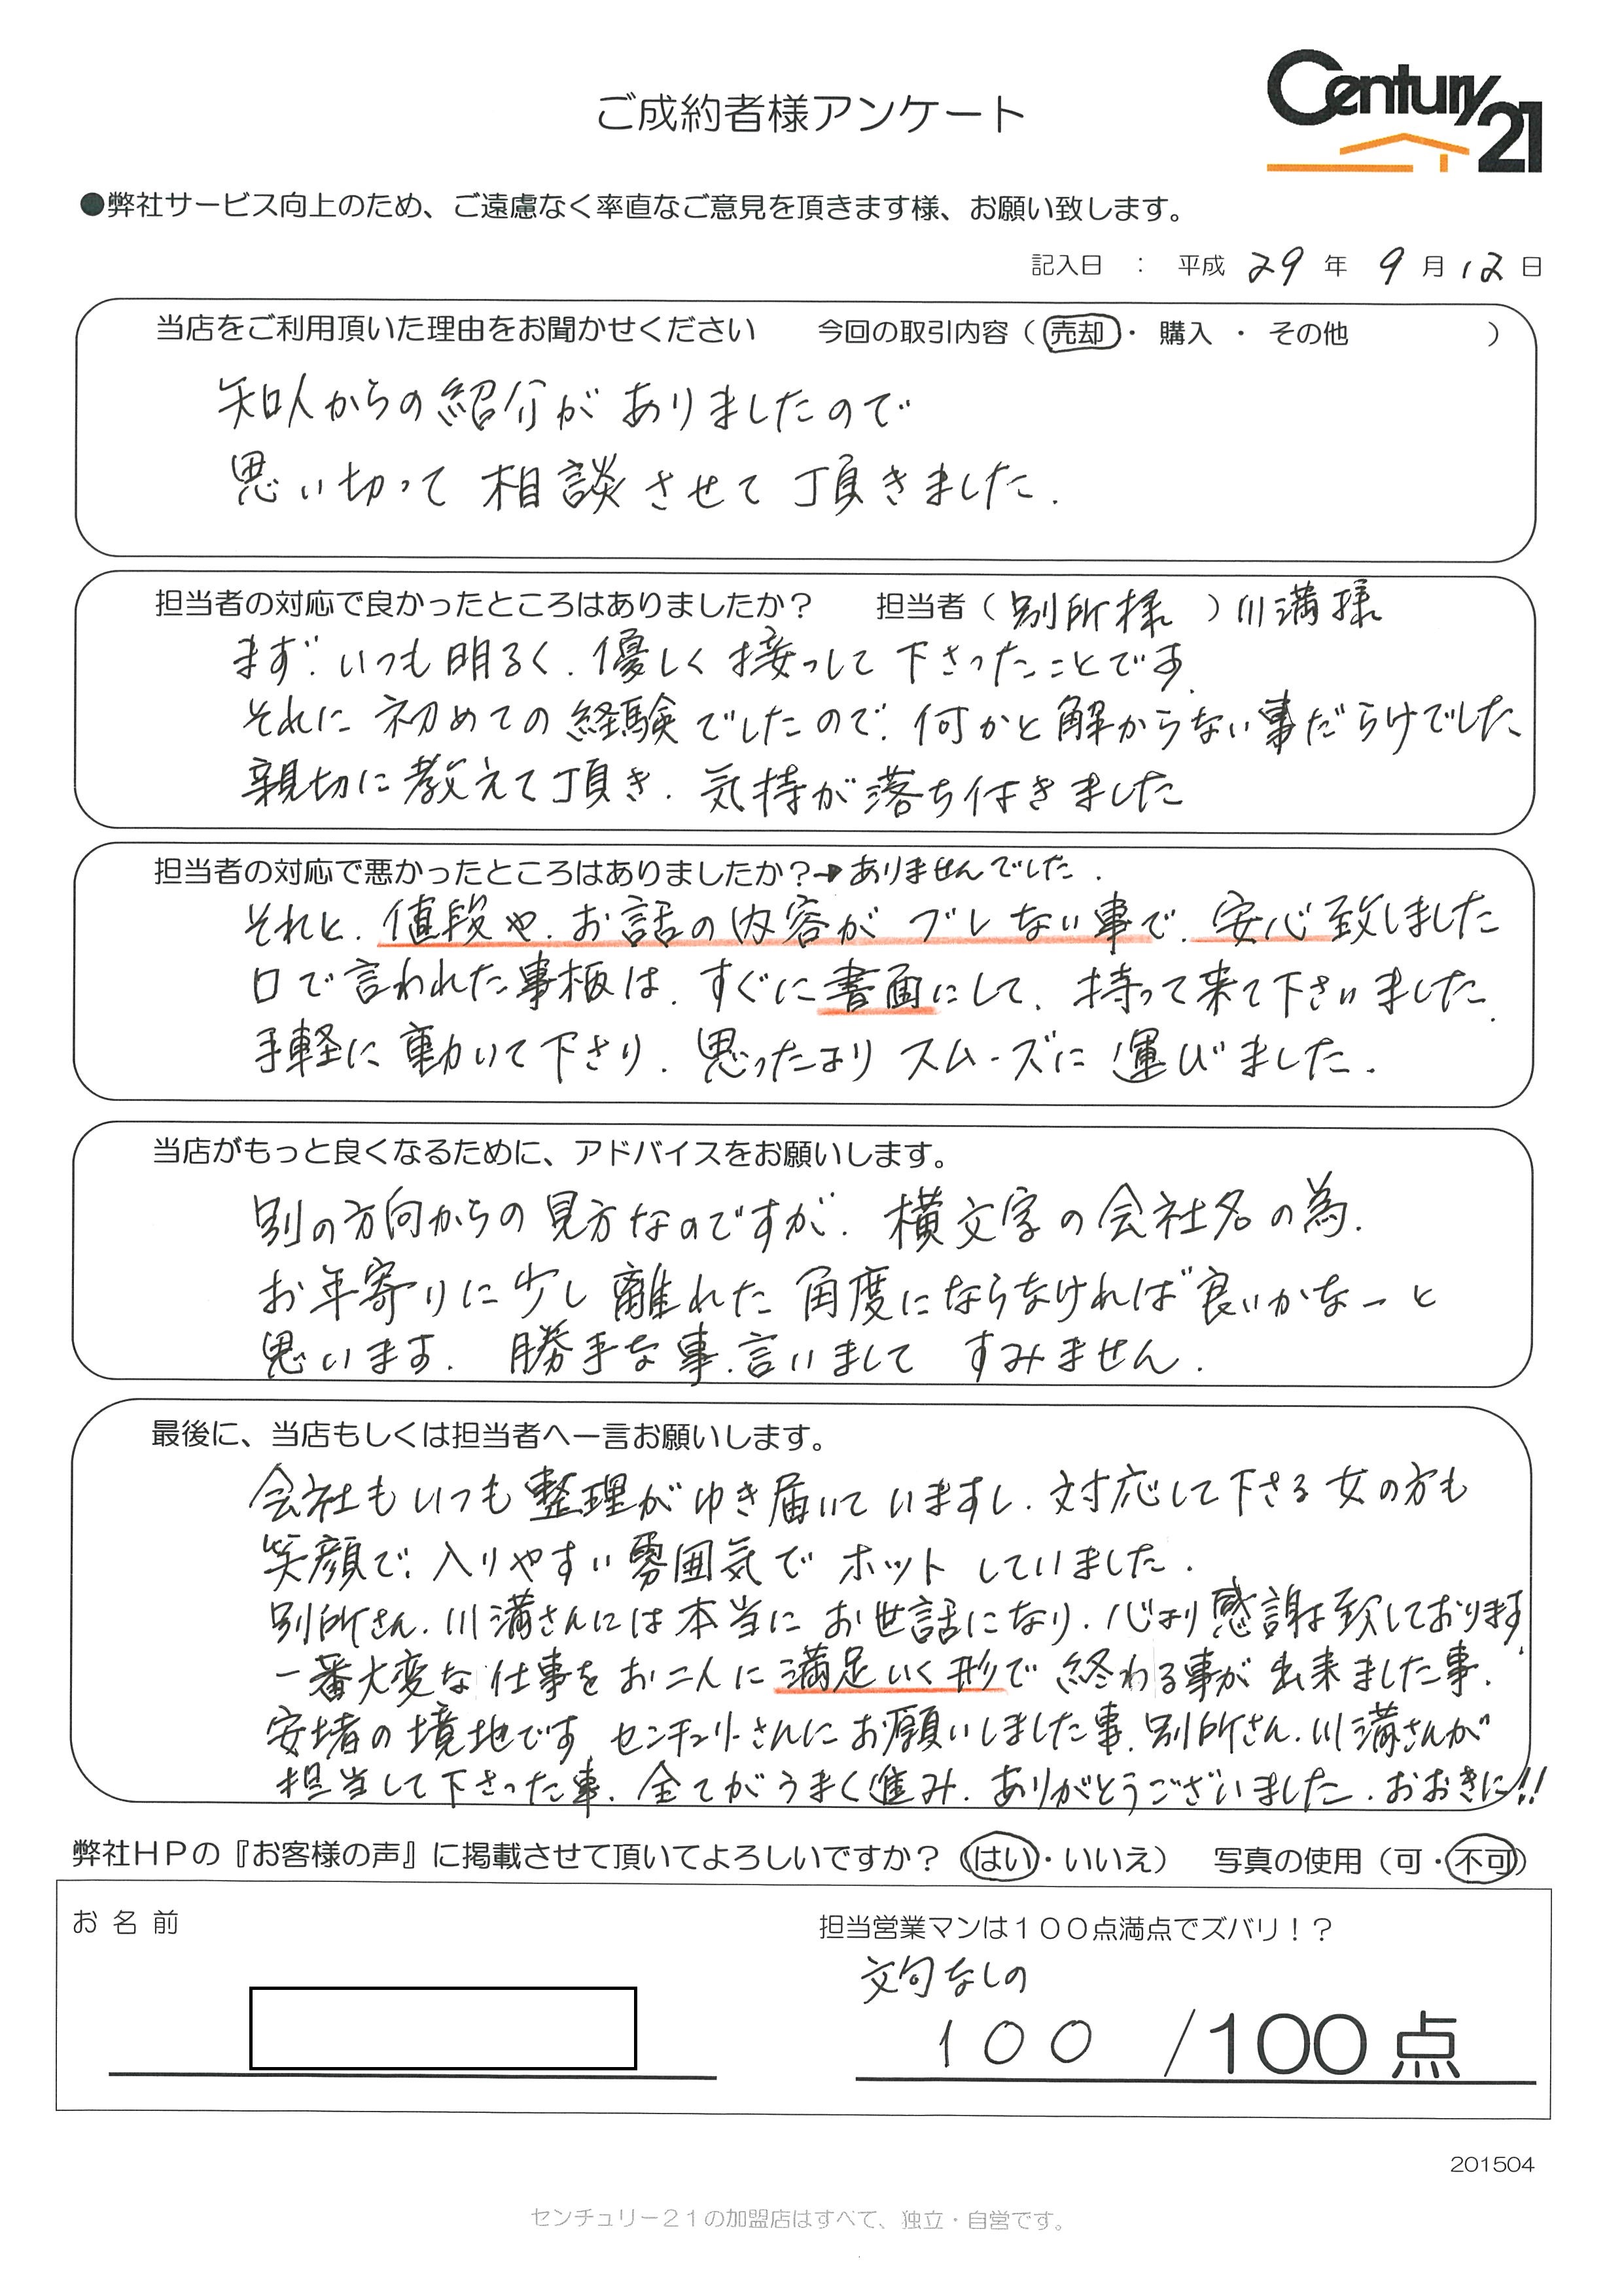 ご成約者様アンケート
Century 21
●弊社サービス向上のため、ご遠慮なく率直なご意見を頂きます様、お願い致します。
記入日 ： 平成 29 年 9 月 12 日
当店をご利用頂いた理由をお聞かせください 今回の取引内容（ 売却 ・ 購入 ・ その他 ）
知人からの紹介がありましたので
思い切って 相談させて頂きました.
担当者の対応で良かったところはありましたか？ 担当者（ 別所様 ）川溝様
まず、いつも明るく、優しく接っして下さったことです.
それに初めての経験でしたので、何かと解からない事だらけでした
親切に教えて頂き、気持が落ち付きました
担当者の対応で悪かったところはありましたか？→ありませんでした.
それと、値段や、お話の内容がブレない事で、安心致しました
口で言われた事柄は、すぐに書面にして、持って来て下さいました.
手軽に動いて下さり、思ったよりスムーズに運びました.
当店がもっと良くなるために、アドバイスをお願いします。
別の方向からの見方なのですが、横文字の会社名の為、
お年寄りに少し離れた角度にならなければ良いかなーと
思います. 勝手な事、言いまして すみません.
最後に、当店もしくは担当者へ一言お願いします。
会社もいつも整理がゆき届いていますし、対応して下さる女の方も
笑顔で、入りやすい雰囲気でホットしていました.
別所さん、川溝さんには本当にお世話になり、心より感謝致しております.
一番大変な仕事をお二人に満足いく形で終わる事が出来ました事、
安堵の境地です センチュリーさんにお願いしました事、別所さん、川溝さんが
担当して下さった事、全てがうまく進み、ありがとうございました. おおきに!!
弊社ＨＰの『お客様の声』に掲載させて頂いてよろしいですか？（はい・いいえ） 写真の使用（可・不可）
お 名 前
担当営業マンは１００点満点でズバリ！？
文句なしの
100 /100点
201504
センチュリー２１の加盟店はすべて、独立・自営です。